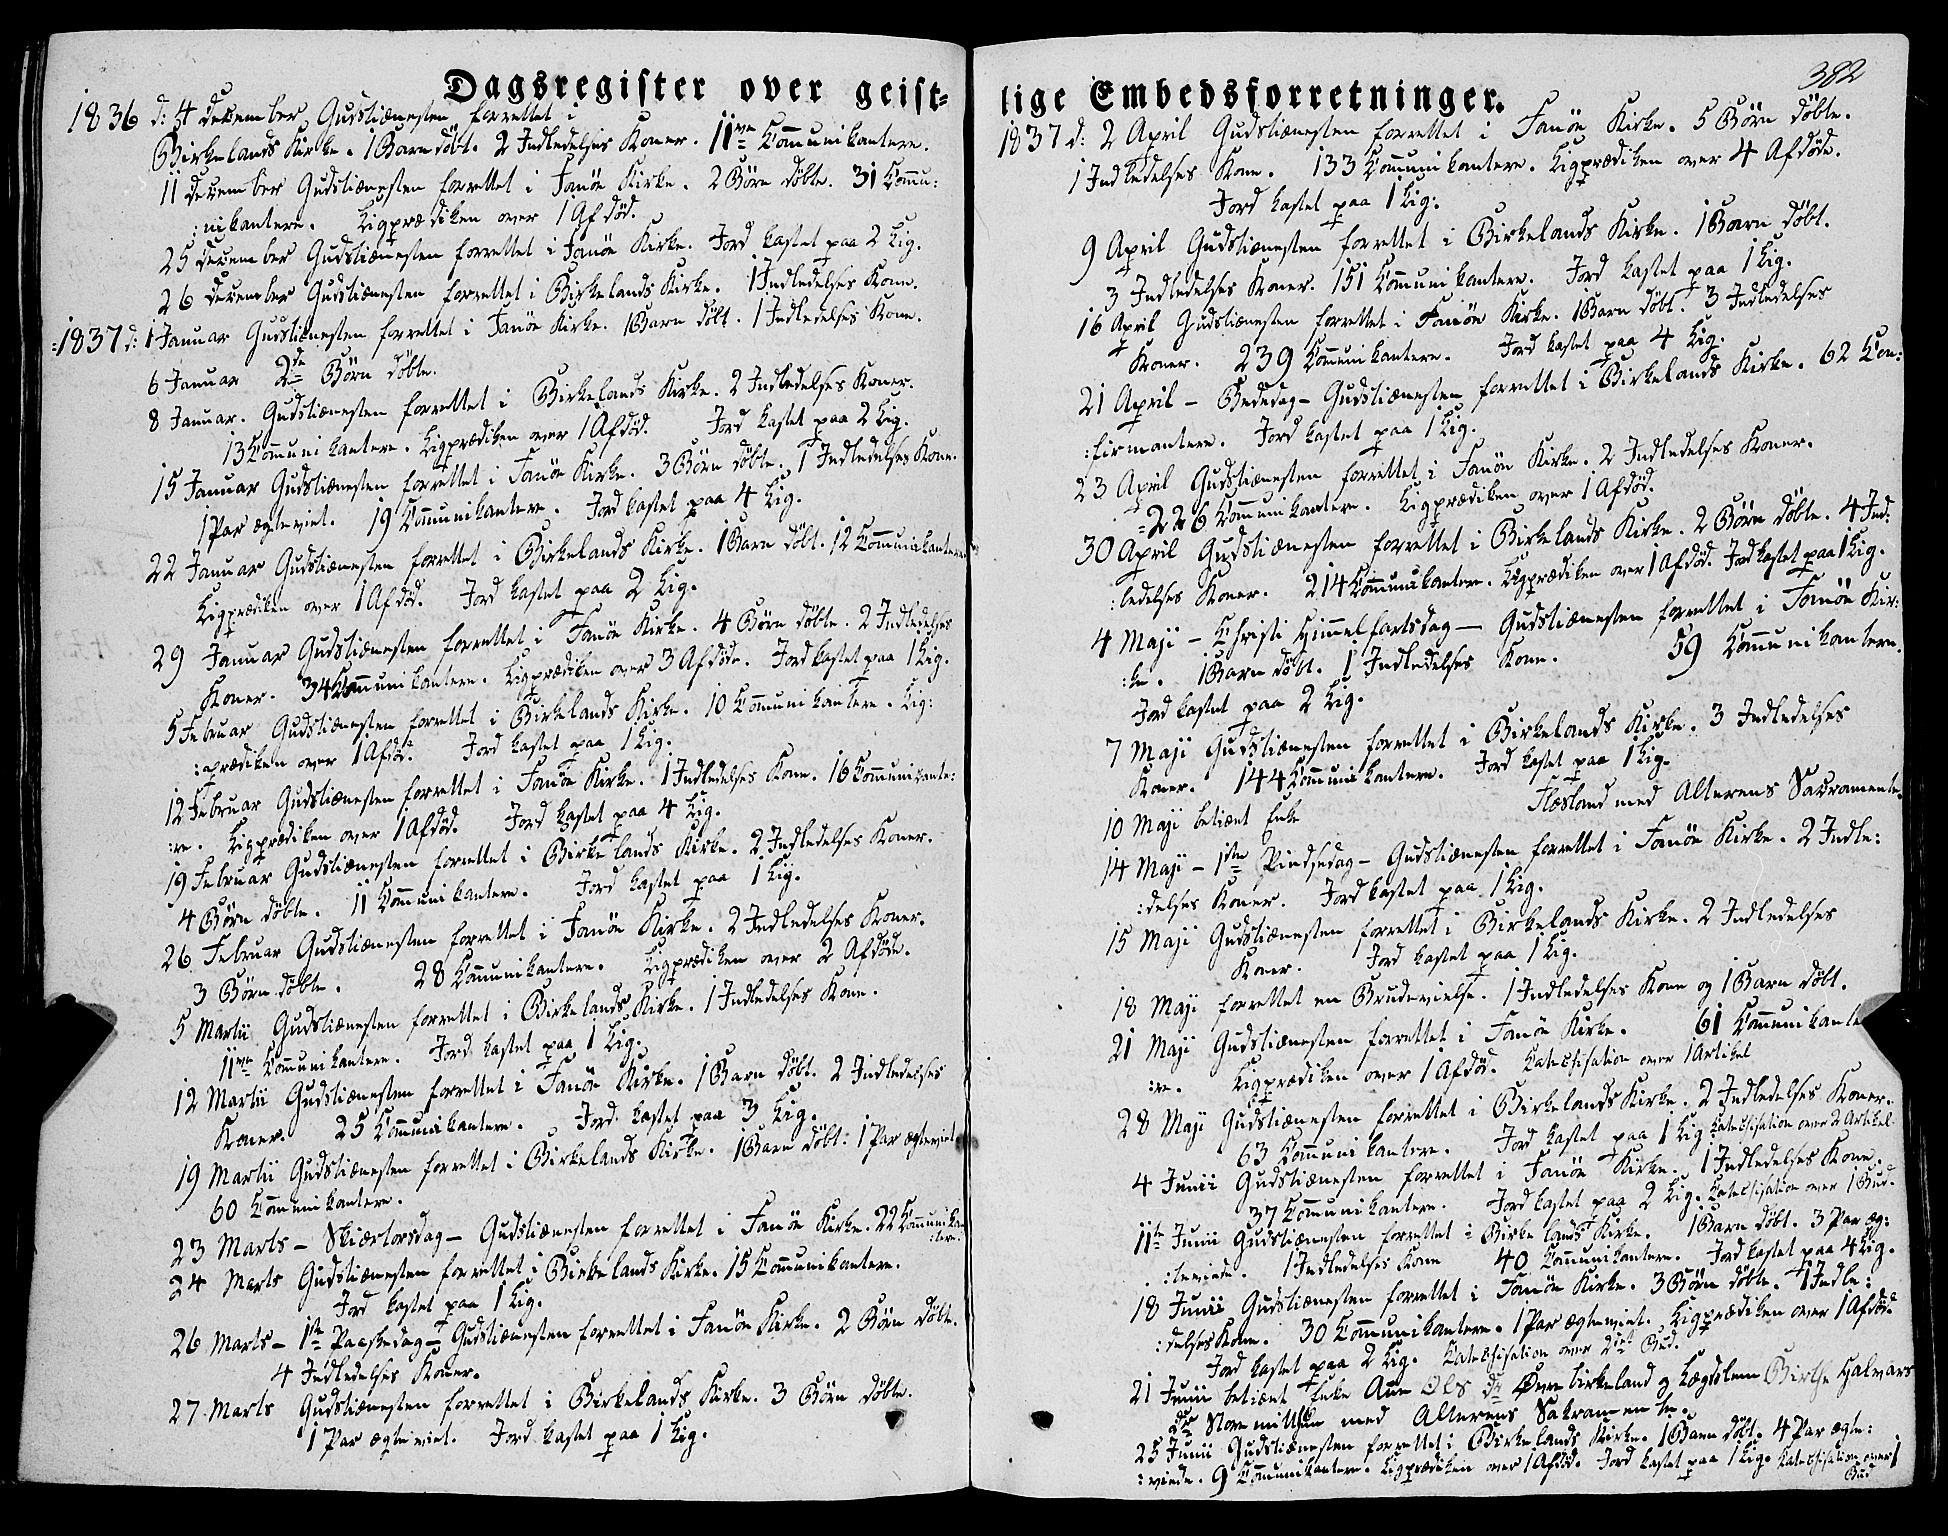 Dagsregister over geist-
1836 d: 4 December Gudstiænesten forrettet i
Birkelands Kirke. 1 Barn døbt. 2 Indledelses Koner. 11ve Communikantere.
11 December Gudstiænesten forrettet i Fanøe Kirke. 2 Børn døbte. 31 Commu:
:nikantere. Ligprædiken over 1 Afdød.
25 December Gudstiænesten forrettet i Fanøe Kirke. Jord kastet paa 2 Lig.
26 December Gudstiænesten forrettet i Birkelands Kirke. 1 Indledelses Kone.
:1837 d: 1 Januar Gudstiænesten forrettet i Fanøe Kirke. 1 Barn døbt. 1 Indledelses Kone.
6 Januar 2de Børn døbte.
8 Januar. Gudstiænesten forrettet i Birkelands Kirke. 2 Indledelses Koner.
13 Communikantere. Ligprædiken over 1 Afdød. Jord kastet paa 2 Lig.
15 Januar Gudstiænesten forrettet i Fanøe Kirke. 3 Børn døbte. 1 Indledelses Kone.
1 Par ægteviet. 19 Communikantere. Jord kastet paa 4 Lig.
22 Januar Gudstiænesten forrettet i Birkelands Kirke. 1 Barn døbt. 12 Communikantere
Ligprædiken over 1 Afdød. Jord kastet paa 2 Lig.
29 Januar Gudstiænesten forrettet i Fanøe Kirke. 4 Børn døbte. 2 Indledelses
Koner. 34 Communikantere. Ligprædiken over 3 Afdøde. Jord kastet paa 1 Lig.
5 Februar Gudstiænesten forrettet i Birkelands Kirke. 10 Communikantere. Lig:
:prædiken over 1 Afdød. Jord kastet paa 1 Lig.
12 Februar Gudstiænesten forrettet i Fanøe Kirke. 1 Indledelses Kone. 16 Communikante:
:re. Ligprædiken over 1 Afdød. Jord kastet paa 4 Lig.
19 Februar Gudstiænesten forrettet i Birkelands Kirke. 2 Indledelses Koner.
4 Børn døbte. 11 Communikantere. Jord kastet paa 1 Lig.
26 Februar Gudstiænesten forrettet i Fanøe Kirke. 2 Indledelses Koner.
3 Børn døbte. 28 Communikantere. Ligprædiken over 2 Afdøde.
5 Martii Gudstiænesten forrettet i Birkelands Kirke. 1 Indledelses Kone.
11ve Communikantere. Jord kastet paa 1 Lig.
12 Martii Gudstiænesten forrettet i Fanøe Kirke. 1 Barn døbt. 2 Indledelses
Koner. 25 Communikantere. Jord kastet paa 3 Lig.
19 Martii Gudstiænesten forrettet i Birkelands Kirke. 1 Barn døbt: 1 Par ægteviet
60 Communikantere.
23 Marts - Skiærtorsdag - Gudstiænesten forrettet i Fanøe Kirke. 22 Communikan
:tere.
24 Marts Gudstiænesten forrettet i Birkelands Kirke. 15 Communikantere.
Jord kastet paa 1 Lig.
26 Marts - 1ste Paaskedag - Gudstiænesten forrettet i Fanøe Kirke. 2 Børn døbt.
4 Indledelses Koner.
27 Marts Gudstiænesten forrettet i Birkelands Kirke. 3 Børn døbte.
1 Par ægteviet. Jord kastet paa 1 Lig.
382
lige Embedsforretninger.
1837 d: 2 April Gudstiænesten forrettet i Fanøe Kirke. 5 Børn døbte.
1 Indledelses Kone. 133 Communikantere. Ligprædiken over 4 Afdøde.
Jord kastet paa 1 Lig:
9 April Gudstiænesten forrettet i Birkelands Kirke. 1 Barn døbt.
3 Indledelses Koner. 151 Communikantere. Jord kastet paa 1 Lig.
16 April Gudstiænesten forrettet i Fanøe Kirke. 1 Barn døbt. 3 Indledelses
Koner. 239 Communikantere. Jord kastet paa 4 Lig.
21 April - Bededag - Gudstiænesten forrettet i Birkelands Kirke. 62 Con:
:firmantere. Jord kastet paa 1 Lig.
23 April Gudstiænesten forrettet i Fanøe Kirke. 2 Indledelses Koner.
:226 Communikantere. Ligprædiken over 1 Afdød.
30 April Gudstiænesten forrettet i Birkelands Kirke. 2 Børn døbte. 4 Ind:
:ledelses Koner. 214 Communikantere. Ligprædiken over 1 Afdød. Jord kastet paa 1 Lig.
4 Maji - Christi Himmelfartsdag - Gudstiænesten forrettet i Fanøe Kir:
:ke. 1 Barn døbt. 1 Indledelses Kone. 59 Communikantere.
Jord kastet paa 2 Lig.
7 Maji Gudstiænesten forrettet i Birkelands Kirke. 3 Indledelses
Koner. 144 Communikantere. Jord kastet paa 1 Lig.
10 Maji betient Enke Flesland med Alterens Sacramente.
14 Maji - 1ste Pindsedag - Gudstiænesten forrettet i Fanøe Kirke. 2 Indle:
:delses Koner. Jord kastet paa 1 Lig.
15 Maji Gudstiænesten forrettet i Birkelands Kirke. 2 Indledelses
Koner. Jord kastet paa 1 Lig.
18 Maji forrettet en Brudevielse. 1 Indledelses Kone og 1 Barn døbt.
21 Maji Gudstiænesten forrettet i Fanøe Kirke. 61 Communikante
:re. Ligprædiken over 1 Afdød. Catechisation over 1 Artikel
28 Maji Gudstiænesten forrettet i Birkelands Kirke. 2 Indledelses Koner.
63 Communikantere. Jord kastet paa 1 Lig Catechisation over 2 Artikel.
4 Junii Gudstiænesten forrettet i Fanøe Kirke. 1 Indledelses Kone.
37 Communikantere. Jord kastet paa 2 Lig. Catechisation over 1 Bud.
11te Junii Gudstiænesten forrettet i Birkelands Kirke. 1 Barn døbt. 3 Par æg:
:teviede. 1 Indledelses Kone 40 Communikantere. Jord kastet paa 4 Lig.
18 Junii Gudstiænesten forrettet i Fanøe Kirke. 3 Børn døbte. 1 Indle:
:delses Kone. 30 Communikantere. 1 Par ægteviet. Ligprædiken over 1 Afdød
Jord kastet paa 2 Lig. Catechisation over 2det Bud.
21 Junii betient Enke Ane Ols dr Øvre birkeland og Lægdslem Birthe Halvars
dr Store mitthun med Alterens Sakramente.
25 Junii Gudstiænesten forrettet i Birkelands Kirke. 1 Barn døbt. 4 Par ægte:
:viede. 9 Communikantere. Ligprædiken over 1 Afdød. Jord kastet paa 1 Lig. Catechisation over 1
Bud